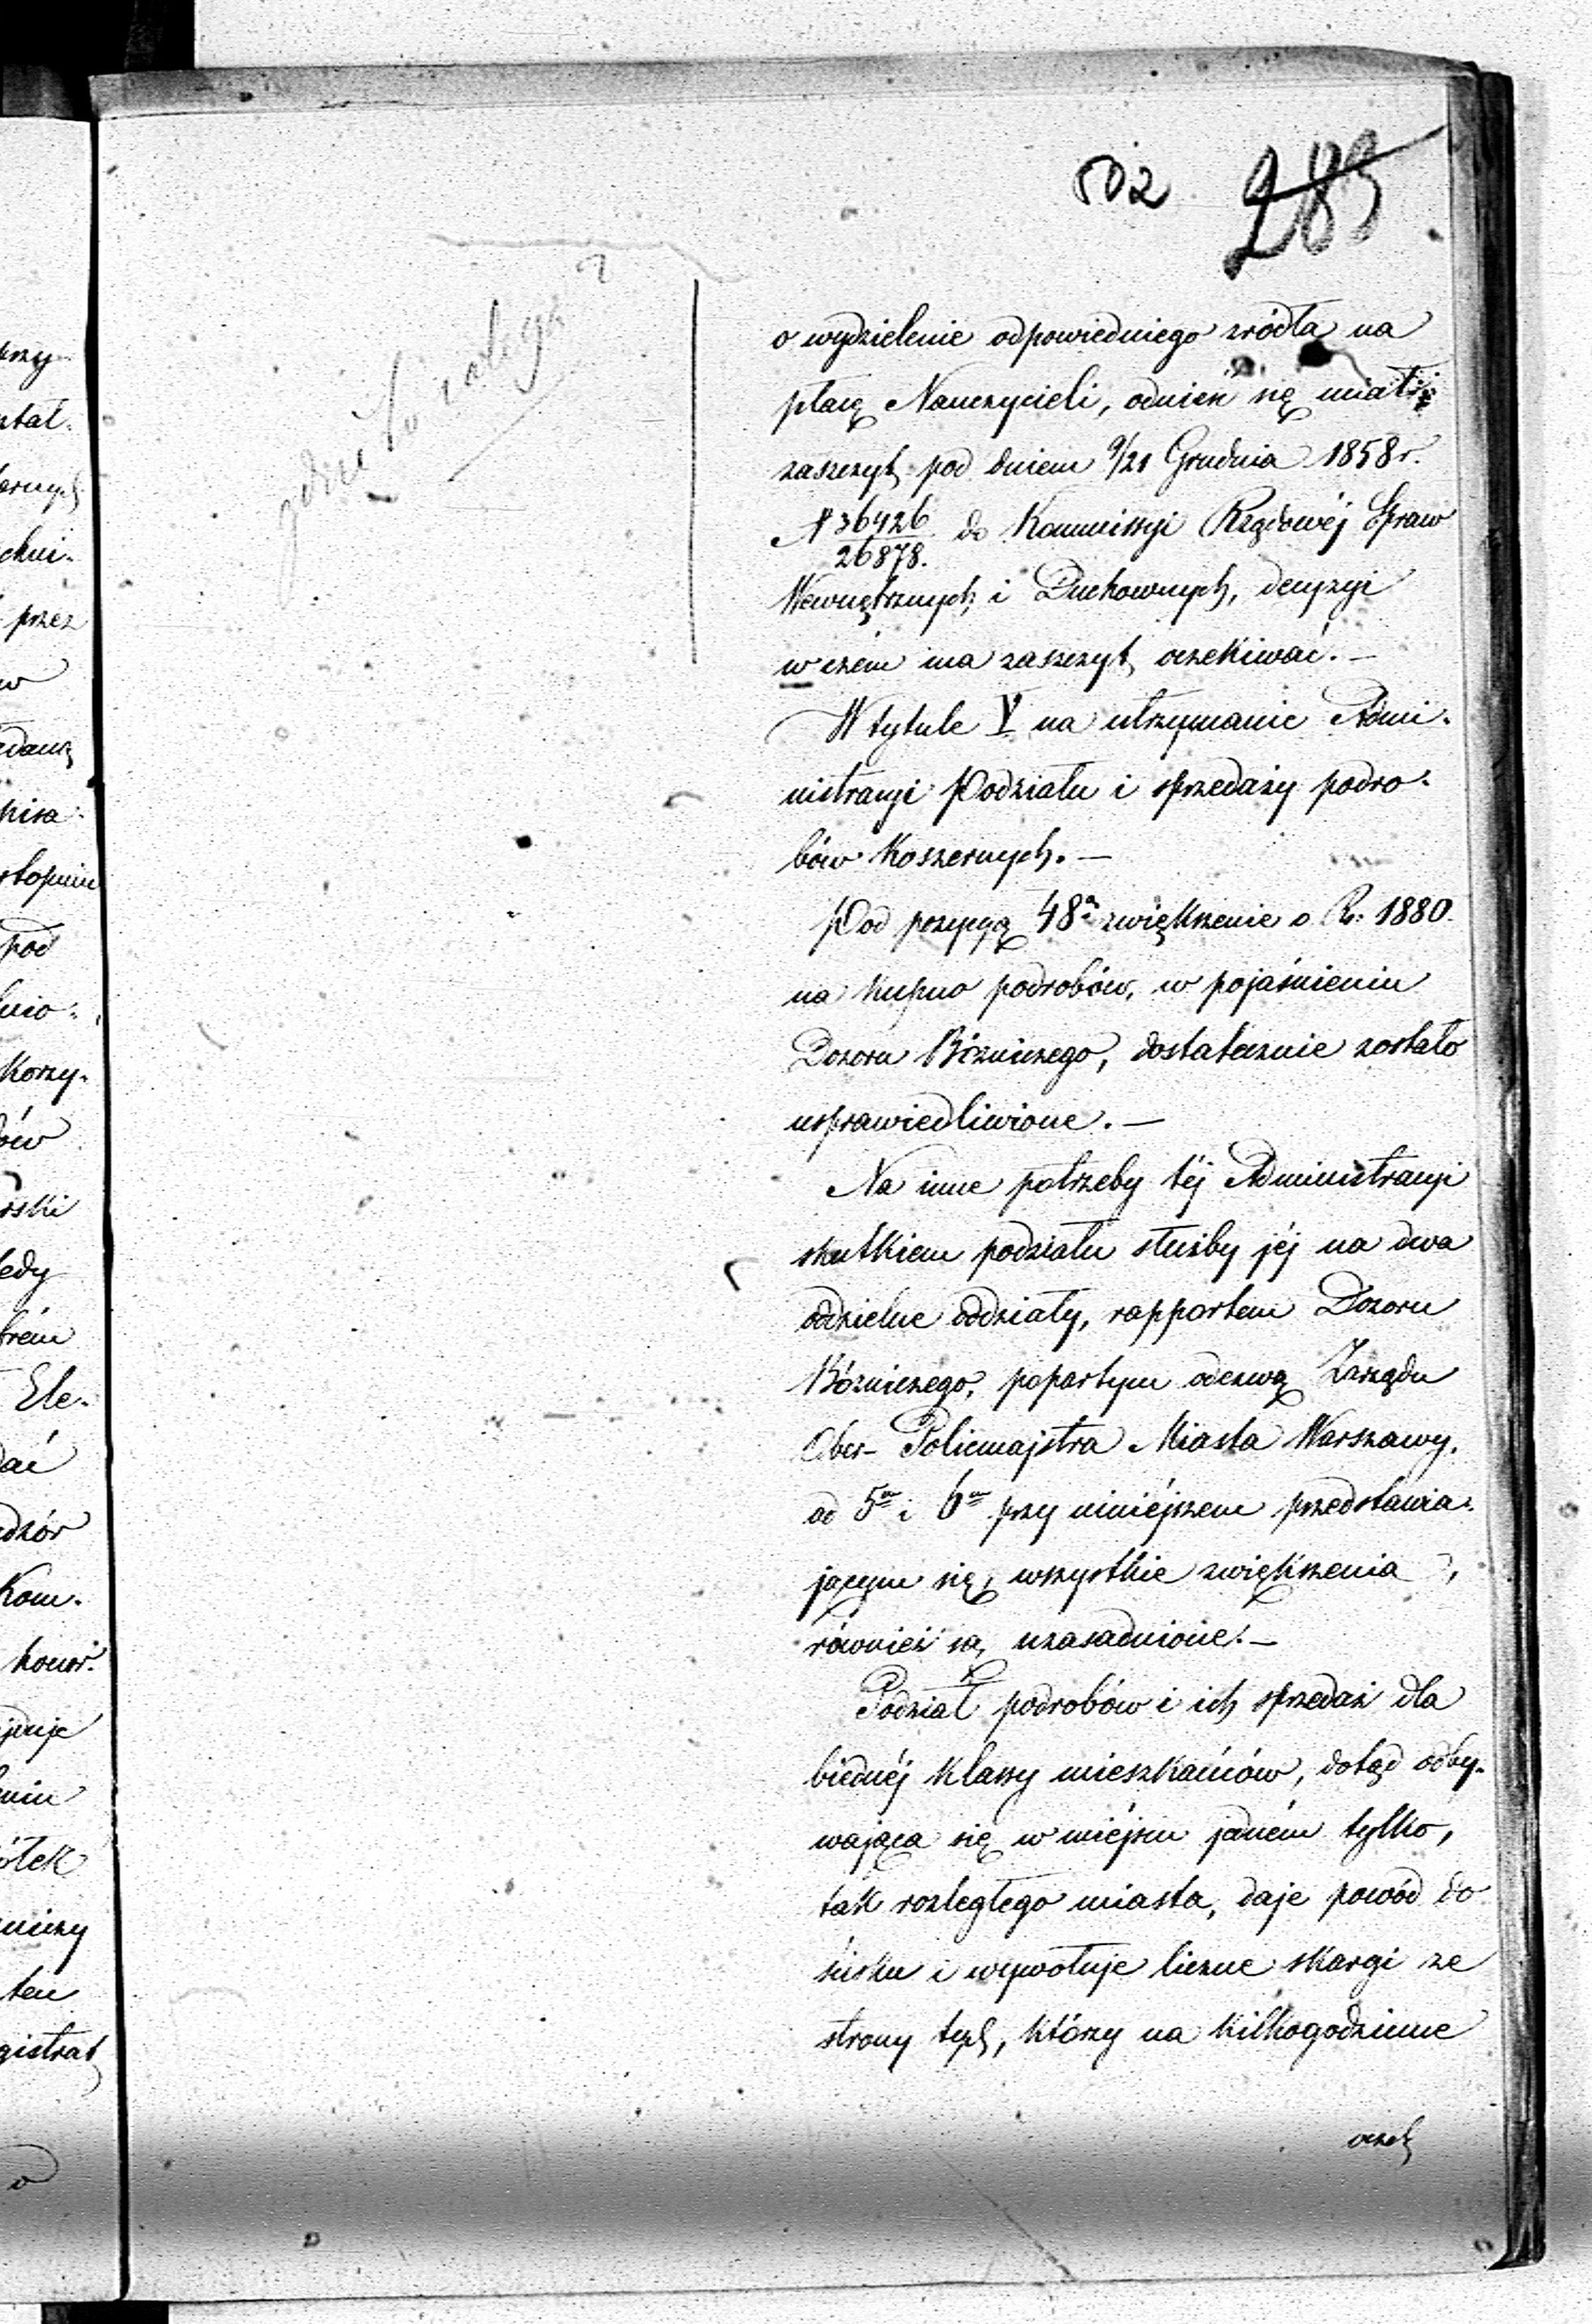 502 283
o wydzielenie odpowiedniego zródła na
płacę Nauczycieli, odnieść się miał
zaszczyt pod dniem 9/21 Grudnia 1858 r.
N 36426/26878. do Kommissyi Rządowéj Spraw
Wewnętrznych i Duchownych, decyzyi
w czém ma zaszczyt oczekiwać. —
W tytule V na utrzymanie Admi-
nistracyi Podziału i sprzedaży podro-
bów Koszernych. —
Pod pozycyą 48ą zwiększenie o R: 1880.
na kupno podrobów, w pojaśnieniu
Dozoru Bóżniczego, dostatecznie zostało
usprawiedliwione. —
Na inne potrzeby téj Administracyi
skutkiem podziału służby jéj na dwa
oddzielne oddziały, rapportem Dozoru
Bóżniczego, popartym odezwą Zarządu
Ober-Policmajstra Miasta Warszawy,
ad 5m i 6m przy niniéjszem przedstawia-
jącym się, wszystkie zwiększenia,
również są, uzasadnione. —
Podział podrobów i ich sprzedaż dla
biednéj klassy mieszkańców, dotąd odby-
wająca się w miéjscu jedném tylko,
tak rozległego miasta, daje powód do
ścisku i wywołuje liczne skargi ze
strony tych, którzy na kilkogodzinne
oczek
przy
pod
przez
w
Korzy-
ów
Ele-
Kom-
ten